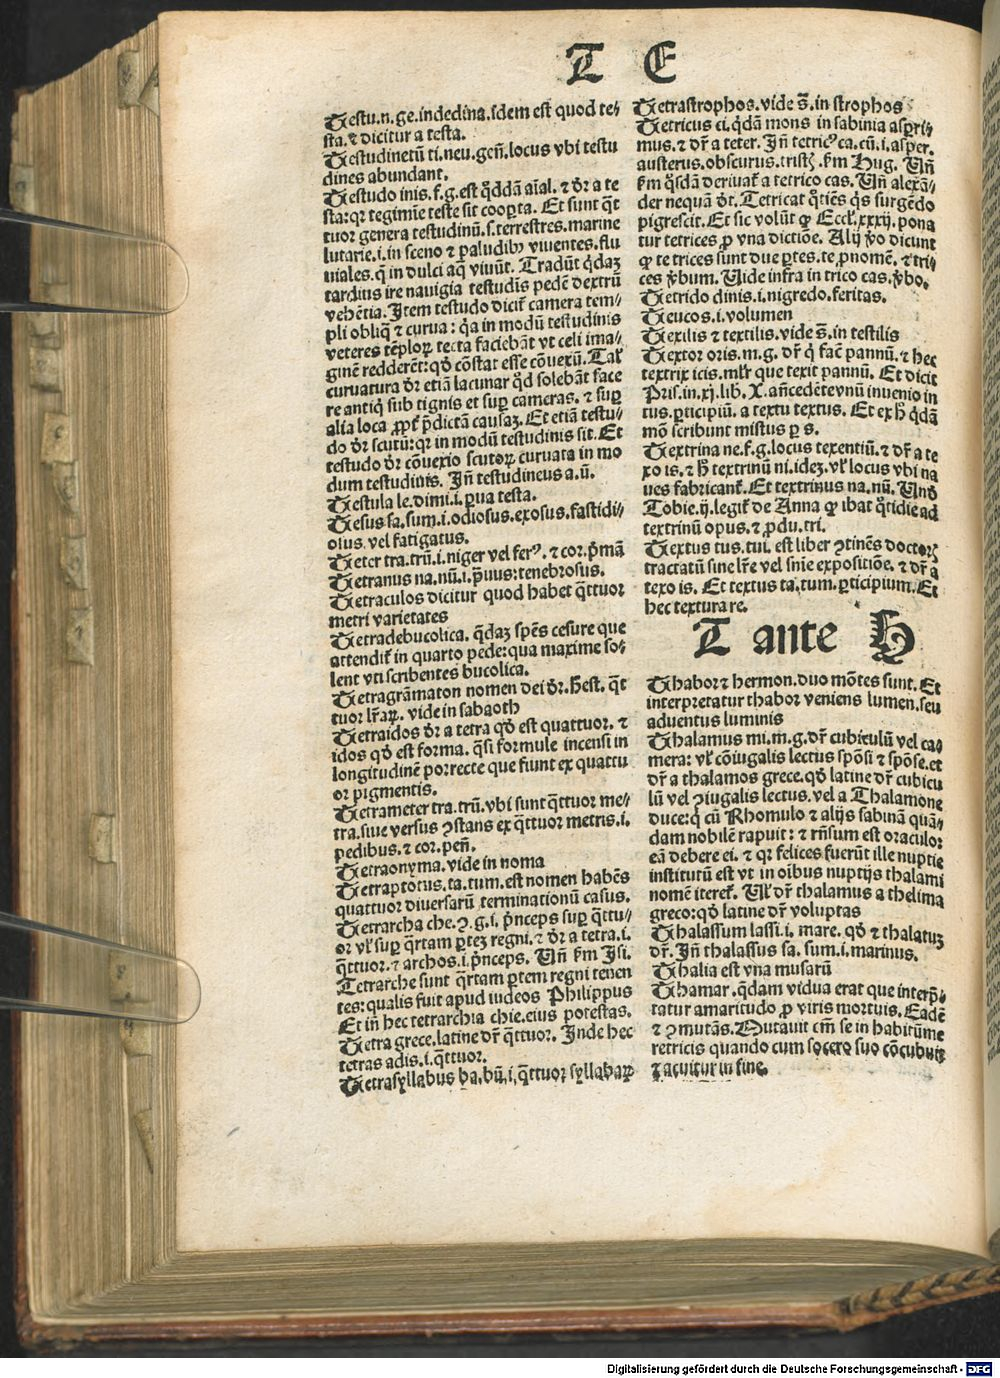 T E
Testu.n.ge.indeclina.idem est quod te⸗
sta.⁊ dicitur a testa.
Testudinetū ti.neu.geñ.locus vbi testu
dines abundant.
Testudo inis.f.g.est q̄ddā aīal.⁊ dr̄ a te
sta:qr tegimīe teste sit cooꝑta. Et sunt q̄t
tuor genera testudinū.s.terrestres.marine
lutarie.i.in sceno ⁊ paludibꝰ viuentes.flu
uiales.q̄ in dulci aq̄ viuūt. Tradūt q̄daꝫ
tardius ire nauigia testudīs pedē dextrū
vehētia. Item testudo dicit̄ camera tem⸗
pli obliq̄ ⁊ curua: q̄a in modū testudinis
veteres tēploꝝ tecta faciebāt vt celi ima⸗
ginē redderēt:qd̄ cōstat esse cōuexū. Tal̄
curuatura dr̄ etiā lacunar qd̄ solebāt face
re antiq̄ sub tignis et suꝑ cameras.⁊ suꝑ
alia loca ꝓpt̄ p̄dictā causaꝫ. Et etiā testu⸗
do dr̄ scutū:qr in modū testudinis sit. Et
testudo dr̄ cōuexio scutoꝝ curuata in mo
dum testudinis. Iñ testudineus a.ū.
Testula le.dimi.i.ꝑua testa.
Tesus sa.sum.i.odiosus.exosus.fastidi⸗
osus.vel fatigatus.
Teter tra.trū.i.niger vel ferꝰ.⁊ cor.p̄mā
Tetranus na.nū.i.ꝑuus:tenebrosus.
Tetraculos dicitur quod habet q̄ttuor
metri varietates
Tetradebucolica. q̄daꝫ spēs cesure que
attendit̄ in quarto pede:qua maxime so⸗
lent vti scribentes bucolica.
Tetragrāmaton nomen dei dr̄.hest. q̄t
tuor lr̄aꝝ. vide in sabaoth
Tetraidos dr̄ a tetra qd̄ est quattuor. ⁊
idos qd̄ est forma. q̄si formule incensi in
longitudinē porrecte que fiunt ex quattu
or pigmentis.
Tetrameter tra.trū.vbi sunt q̄ttuor me⸗
tra.siue versus ꝯstans ex q̄ttuor metris.i.
pedibus.⁊ cor.peñ.
Tetraonyma.vide in noma
Tetraptotus.ta.tum.est nomen habēs
quattuor diuersarū terminationū casus.
Tetrarcha che.ꝯ.g.i.p̄nceps suꝑ q̄ttu⸗
or vl̄ suꝑ q̄rtam ꝑteꝫ regni.⁊ dr̄ a tetra.i.
q̄ttuor.⁊ archos.i.p̄nceps. Uñ ẜm Isi.
Tetrarche sunt q̄rtam ꝑtem regni tenen
tes:qualis fuit apud iudeos Philippus
Et iñ hec tetrarchia chie.eius potestas.
Tetra grece.latine dr̄ q̄ttuor. Inde hec
tetras adis.i.q̄ttuor.
Tetrasyllabus ba.bū.i.q̄ttuor syllabaꝝ
Tetrastrophos.vide s̄.in strophos
Tetricus ci.q̄dā mons in sabinia asꝑri⸗
mus.⁊ dr̄ a teter. Iñ tetricꝰ ca.cū.i.asper.
austerus.obscurus.tristꝭ.ẜm Hug. Uñ
ẜm q̄sdā deriuat̄ a tetrico cas. Uñ alexā⸗
der nequā dt̄. Tetricat q̄tiēs q̄s surgēdo
pigrescit. Et sic volūt ꝙ Eccl̄.xxxij.pona
tur tetrices ꝓ vna dictiōe. Alij v̄o dicunt
ꝙ te trices sunt due ꝑtes.te ꝓnomē.⁊ tri⸗
ces v̄bum. Uide infra in trico cas.v̄bo.
Tetrido dinis.i.nigredo.feritas.
Teucos.i.volumen
Texilis ⁊ textilis.vide s̄.in testilis
Textor oris.m.g. dr̄ q̄ facē pannū.⁊ hec
textrix icis.ml̄r que texit pannū. Et dicit
Pris.in.xj.lib. X.añcedēte vnū inuenio in
tus.ꝑticipiū.a textu textus. Et ex h̄ q̄dā
mō scribunt mistus ꝑ s.
Textrina ne.f.g.locus texentiū.⁊ dr̄ a te
xo is.⁊ h̄ textrinū ni.ideꝫ.vl̄ locus vbi na
ues fabricant̄. Et textrinus na.nū. Und̄
Tobie.ij.legit̄ de Anna ꝙ ibat q̄tidie ad
textrinū opus.⁊ ꝓdu.tri.
Textus tus.tui. est liber ꝯtinēs doctoꝝ
tractatū sine lr̄e vel snīe expositiōe.⁊ dr̄ a
texo is. Et textus ta.tum.ꝑticipium. Et
hec textura re.
T ante H
Thabor ⁊ hermon.duo mōtes sunt. Et
interpretatur thabor veniens lumen.seu
aduentus luminis
Thalamus mi.m.g.dr̄ cubiculū vel ca⸗
mera: vl̄ cōiugalis lectus spōsi ⁊ spōse.et
dr̄ a thalamos grece.qd̄ latine dr̄ cubicu
lū vel ꝯiugalis lectus.vel a Thalamone
duce:q̄ cū Rhomulo ⁊ alijs sabinā quā⸗
dam nobilē rapuit: ⁊ rñsum est oraculo:
eā debere ei.⁊ qr felices fuerūt ille nuptie
institutū est vt in oībus nuptijs thalami
nomē iteret̄. Ul̄ dr̄ thalamus a thelima
greco:qd̄ latine dr̄ voluptas
Thalassum lassi.i. mare. qd̄ ⁊ thalatuꝫ
dr̄. Iñ thalassus sa. sum.i.marinus.
Thalia est vna musarū
Thamar.q̄dam vidua erat que interp̄⸗
tatur amaritudo ꝓ viris mortuis. Eadē
⁊ ꝯmutās. Mutauit em̄ se in habitū me
retricis quando cum socero suo cōcubuit
⁊ acuitur in fine.
Digitalisierung gefördert durch die Deutsche Forschungsgemeinschaft - DFG